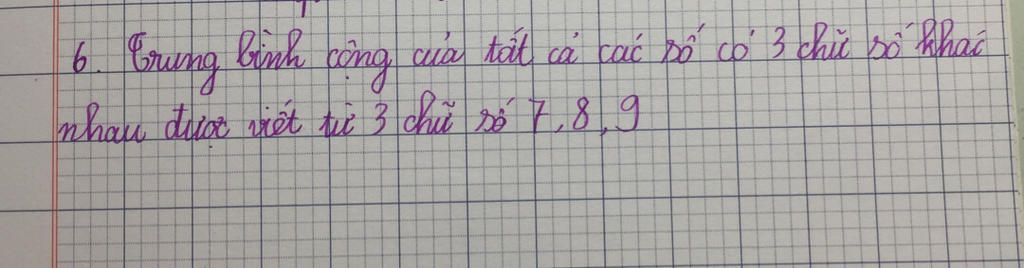 6. Trung bình cộng của tất cả các số có 3 chữ số khác
nhau được viết từ 3 chữ số 7, 8, 9